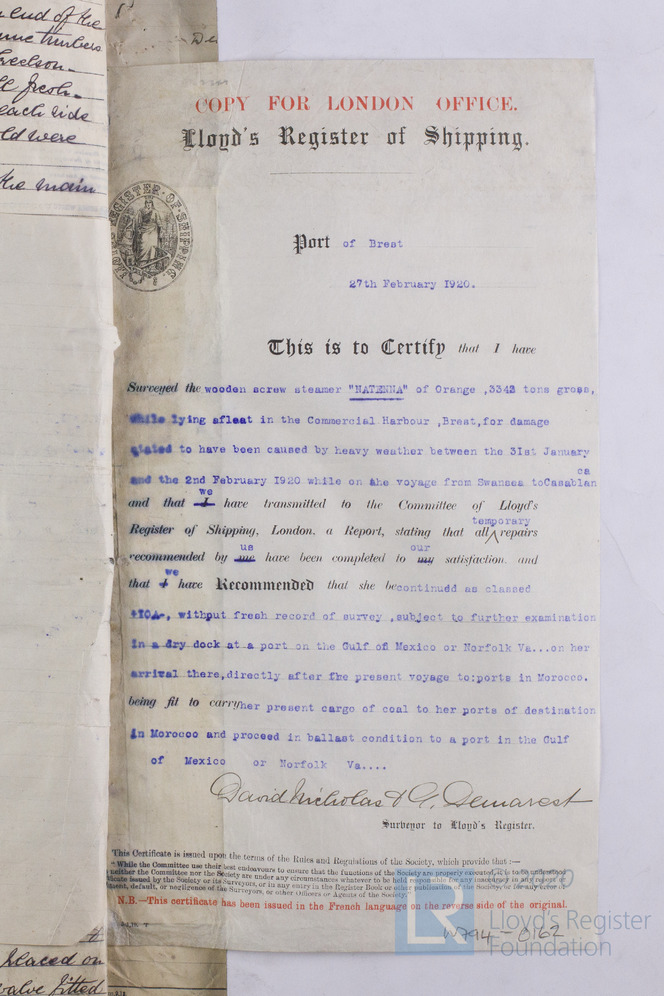 end of the
timbers
keelson.
each side
old were
the main
COPY FOR LONDON OFFICE.
Lloyd's Register of Shipping.
LLOYD'S REGISTER OF SHIPPING.
Port of Brest
27th February 1920.
This is to Certify that I have
Surveyed the wooden screw steamer "NATENNA" of Orange ,3342 tons gross,
while lying afloat in the Commercial Harbour ,Brest,for damage
stated to have been caused by heavy weather between the 31st January
ca
and the 2nd February 1920 while on ahe voyage from Swansea toCasablan
we
and that I have transmitted to the Committee of Lloyd's
temporary
Register of Shipping, London, a Report, stating that all repairs
us our
recommended by me have been completed to my satisfaction, and
we
that I have Recommended that she becontinued as classed
, without fresh record of survey ,subject to further examination
in a dry dock at a port on the Gulf of Mexico or Norfolk Va...on her
arrival there,directly after the present voyage to:ports in Morocco.
being fit to carryher present cargo of coal to her ports of destination
in Morocco and proceed in ballast condition to a port in the Gulf
of Mexico or Norfolk Va....
David Nicholas & G. Demarest
Surveyor to Lloyd's Register.
This Certificate is issued upon the terms of the Rules and Regulations of the Society, which provide that :—
"While the Committee use their best endeavours to ensure that the functions of the Society are properly executed, it is to be understood
neither the Committee nor the Society are under any circumstances whatever to be held responsible for any inaccuracy in any report or
issued by the Society or its Surveyors, or in any entry in the Register Book or other publication of the Society, or for any error of
default, or negligence of the Surveyors, or other Officers or Agents of the Society."
N.B.—This certificate has been issued in the French language on the reverse side of the original.
W794-0162
LR Lloyd's Register
Foundation
placed on
valve fitted